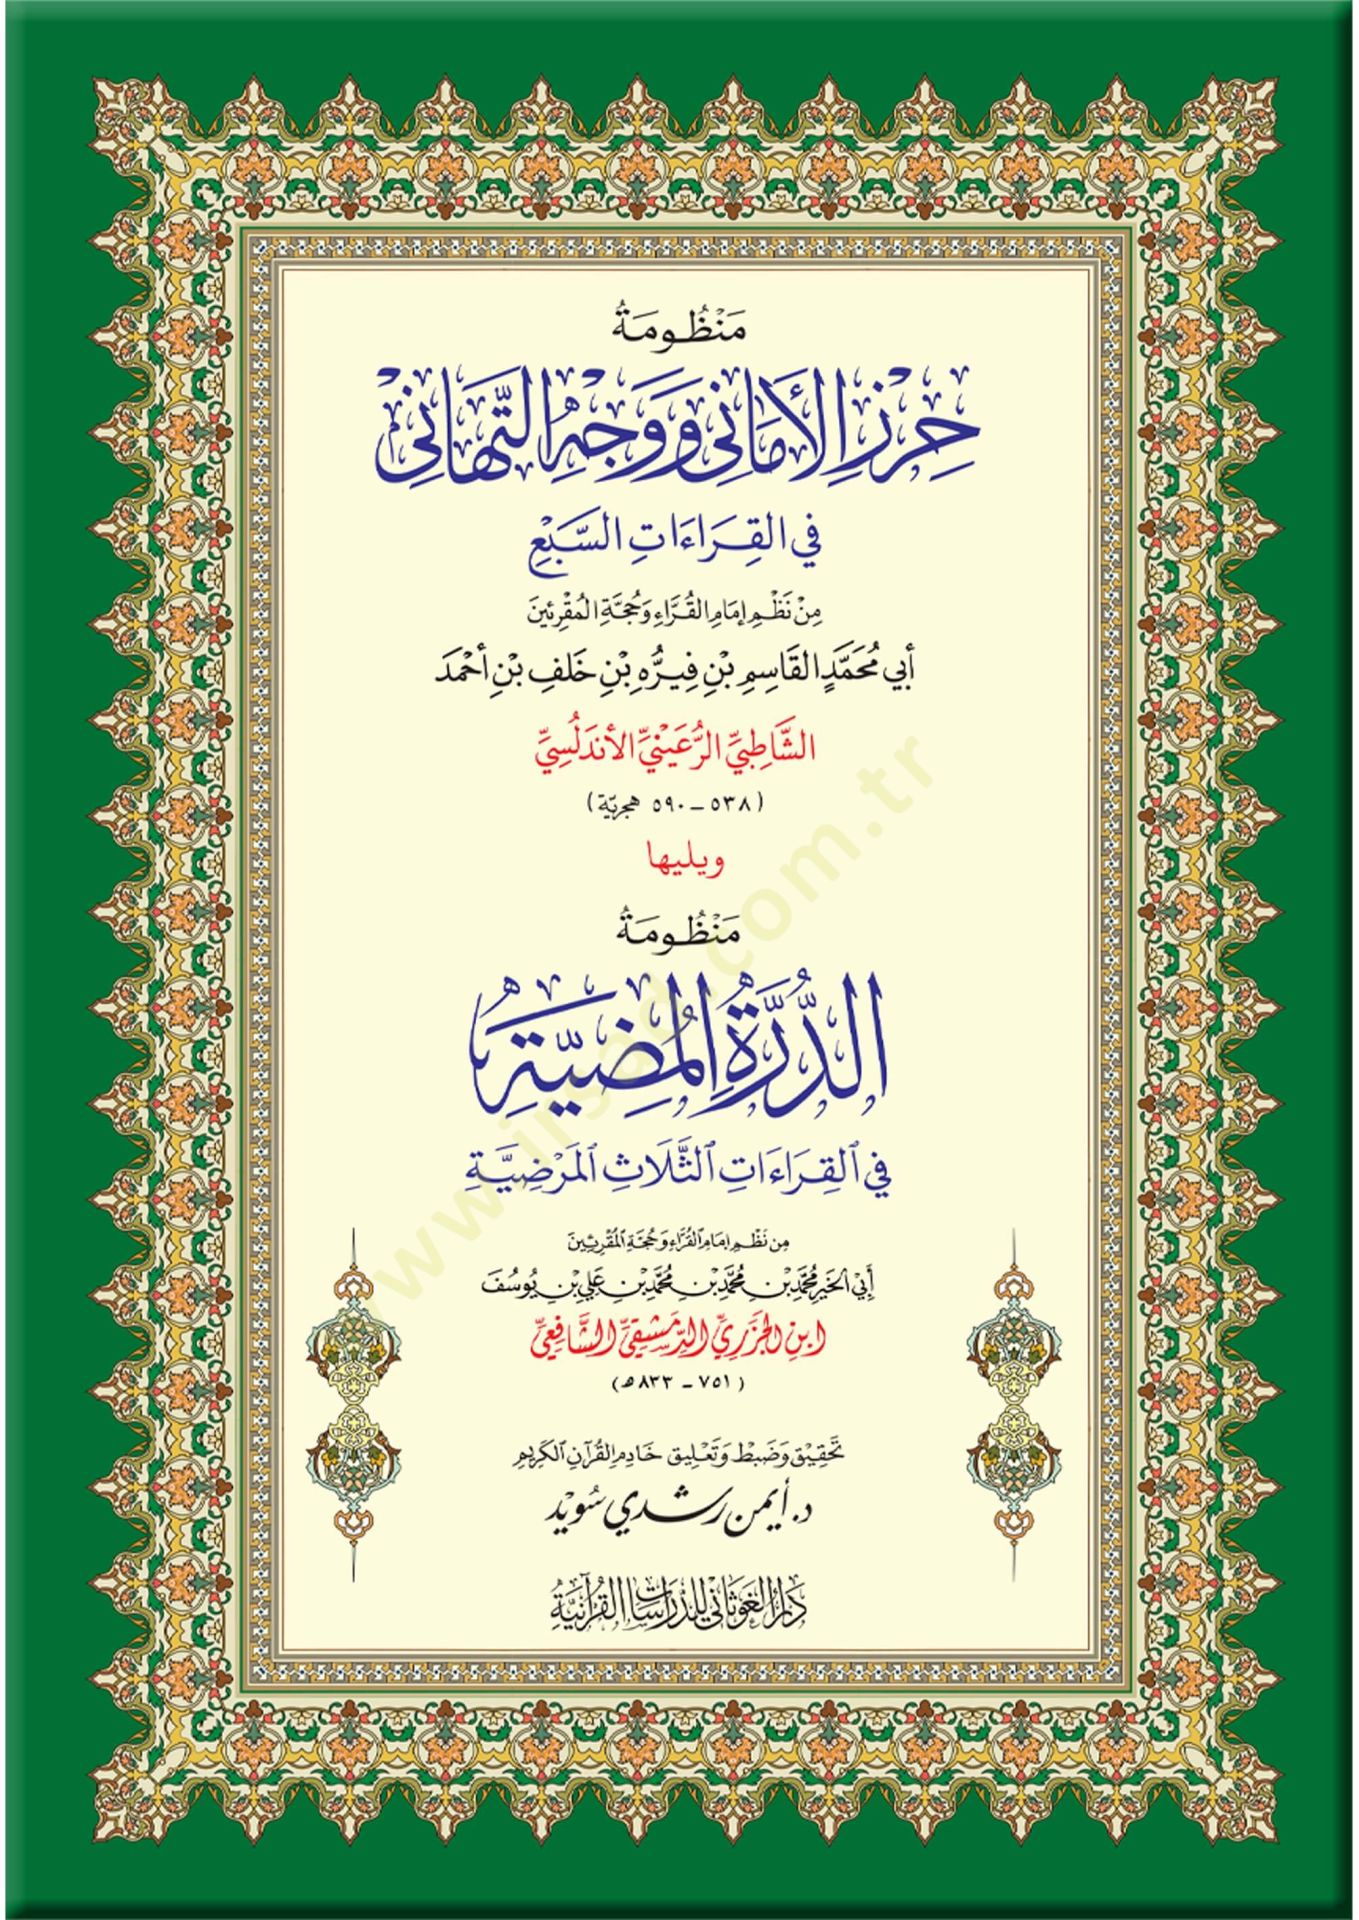 مَنْظُومَةُ
حِرْزِ الْأَمَانِي وَوَجْهِ التَّهَانِي
فِي الْقِرَاءَاتِ السَّبْعِ
مِنْ نَظْمِ إِمَامِ الْقُرَّاءِ وَحُجَّةِ الْمُقْرِئِينَ
أَبِي مُحَمَّدٍ الْقَاسِمِ بْنِ فِيرُّهِ بْنِ خَلَفِ بْنِ أَحْمَدَ
الشَّاطِبِيِّ الرُّعَيْنِيِّ الْأَنْدَلُسِيِّ
(٥٣٨ - ٥٩٠ هجريّة)
ويليها
مَنْظُومَةُ
الدُّرَّةِ الْمُضِيَّةِ
فِي ٱلْقِرَاءَاتِ ٱلثَّلَاثِ ٱلْمَرْضِيَّةِ
مِن نَظْمِ إِمَامِ ٱلْقُرَّاءِ وَحُجَّةِ ٱلْمُقْرِئِينَ
أَبِي الْخَيْرِ مُحَمَّدِ بْنِ مُحَمَّدِ بْنِ مُحَمَّدِ بْنِ عَلِيِّ بْنِ يُوسُفَ
ابْنِ الْجَزَرِيِّ الدِّمَشْقِيِّ الشَّافِعِيِّ
(٧٥١ - ٨٣٣ هـ)
تَحْقِيقُ وَضَبْطُ وَتَعْلِيقُ خَادِمِ الْقُرْآنِ ٱلْكَرِيمِ
د. أيمن رشدي سُوَيْد
دَارُ الْغَوْثَانِي لِلدِّرَاسَاتِ الْقُرْآنِيَّةِ
www.irsad.com.tr